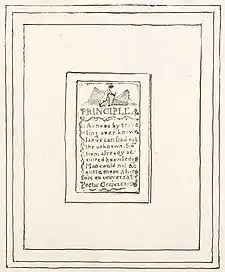 PRINCIPLE. 4
As none by trave
ling over known
lands can find out
the unknown. So
from already ac
quired knowledge
Man could not ac
quire more. there
fore an universal
Poetic Genius exists